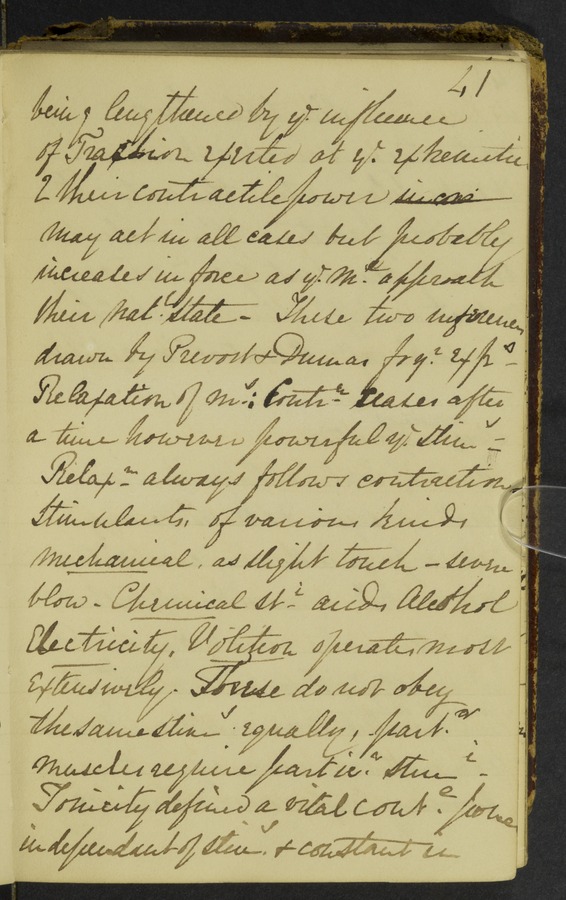 41
being lengthened by yͤ influence
of Traction exerted at yͤ extremitie
2 their contractile power
may act in all cases but probably
increases in force as yͤ Mˢ approach
their natˡ state - These two inferences
drawn by Prevost & Dumas fr yͬ expˢ -
Relaxation of mˢ: Contrⁿ ceases after
a time however powerful yͤ Stimˢ -
Relaxⁿ always follows contraction
Stimulants, of various kinds
mechanical, as slight touch - severe
blow - Chemical stⁱ acids Alcohol
Electricity, Volition operates most
Extensively. These do not obey
the same stimˢ equally, partʳ
muscles require particʳ stimⁱ -
Tonicity defined a vital contᵉ force
independant of stimˢ & constant in